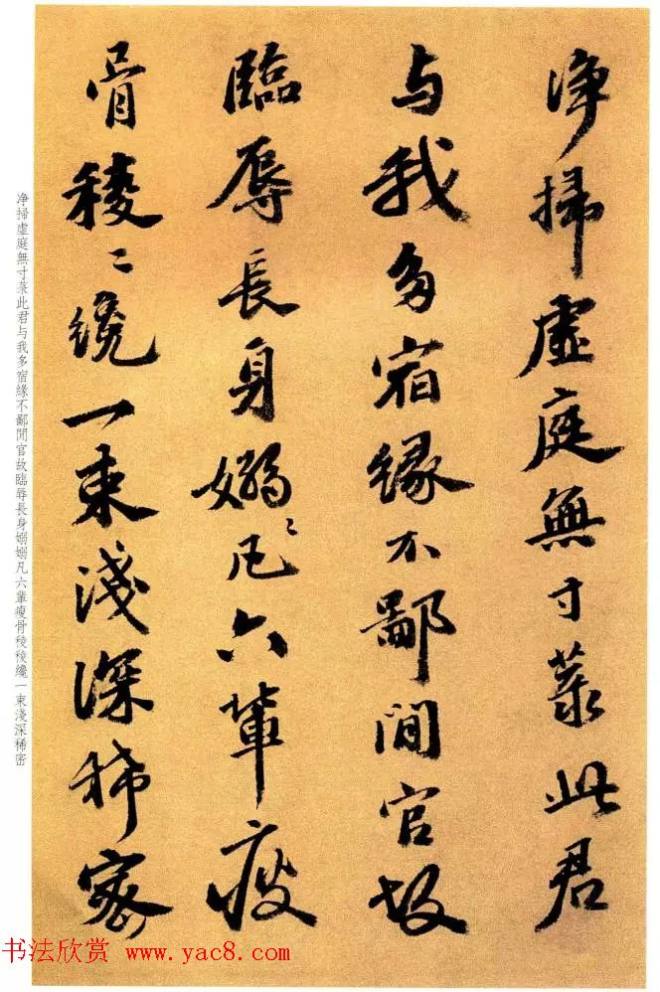 净掃虛庭無寸菉此君
与我多宿緣不鄙閒官故
臨辱長身嫋〻凡六輩瘦
骨稜〻纔一束淺深稀密
净掃虛庭無寸菉此君与我多宿緣不鄙閒官故臨辱長身嫋嫋凡六輩瘦骨稜稜纔一束淺深稀密
书法欣赏 www.yac8.com